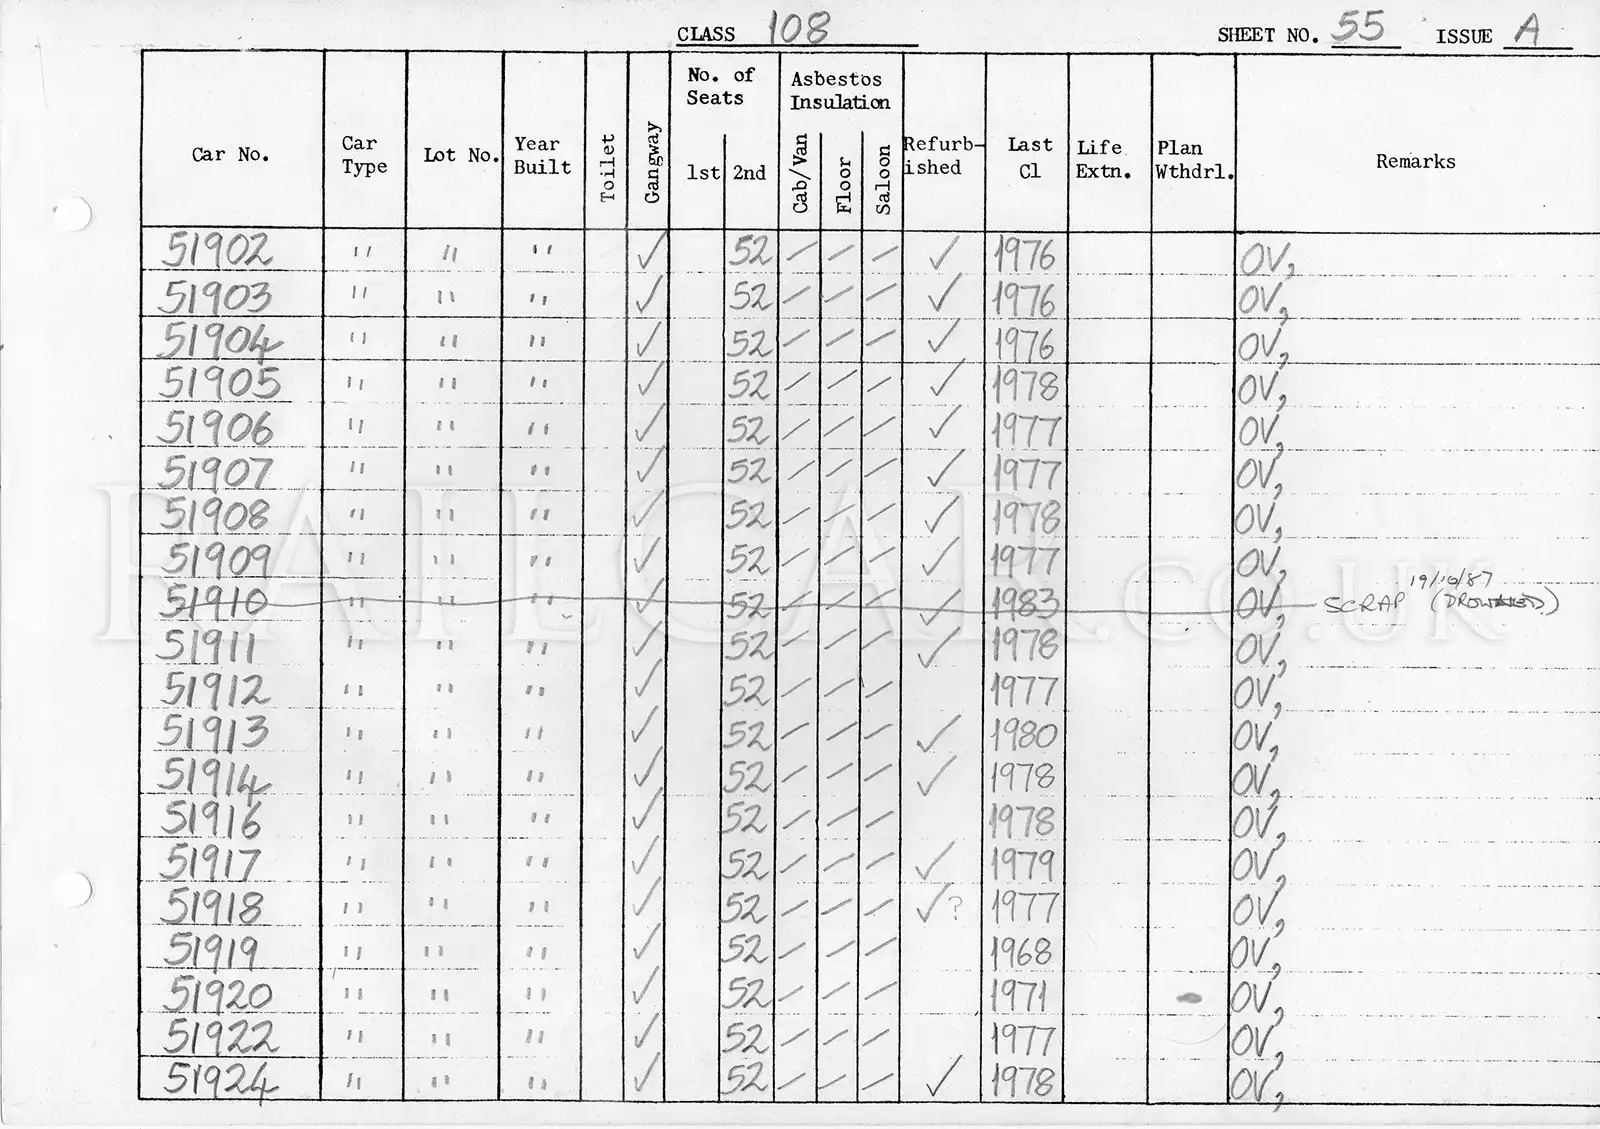 CLASS 108 SHEET NO. 55 ISSUE A
Car No. Car Type Lot No. Year Built Toilet Gangway No. of Seats 1st 2nd Asbestos Insulation Cab/Van Floor Saloon Refurb-ished Last Cl Life Extn. Plan Wthdrl. Remarks
51902 " " " ✓ 52 / / / ✓ 1976 OV,
51903 " " " ✓ 52 / / / ✓ 1976 OV,
51904 " " " ✓ 52 / / / ✓ 1976 OV,
51905 " " " ✓ 52 / / / ✓ 1978 OV,
51906 " " " ✓ 52 / / / ✓ 1977 OV,
51907 " " " ✓ 52 / / / ✓ 1977 OV,
51908 " " " ✓ 52 / / / ✓ 1978 OV,
51909 " " " ✓ 52 / / / ✓ 1977 OV,
51910 " " " ✓ 52 / / / ✓ 1983 OV, SCRAP 19/10/87 (DROWNED)
51911 " " " ✓ 52 / / / ✓ 1978 OV,
51912 " " " ✓ 52 / / / 1977 OV,
51913 " " " ✓ 52 / / / ✓ 1980 OV,
51914 " " " ✓ 52 / / / ✓ 1978 OV,
51916 " " " ✓ 52 / / / 1978 OV,
51917 " " " ✓ 52 / / / ✓ 1979 OV,
51918 " " " ✓ 52 / / / ✓? 1977 OV,
51919 " " " ✓ 52 / / / 1968 OV,
51920 " " " ✓ 52 / / / 1971 OV,
51922 " " " ✓ 52 / / / 1977 OV,
51924 " " " ✓ 52 / / / ✓ 1978 OV,
RAILCAR.CO.UK